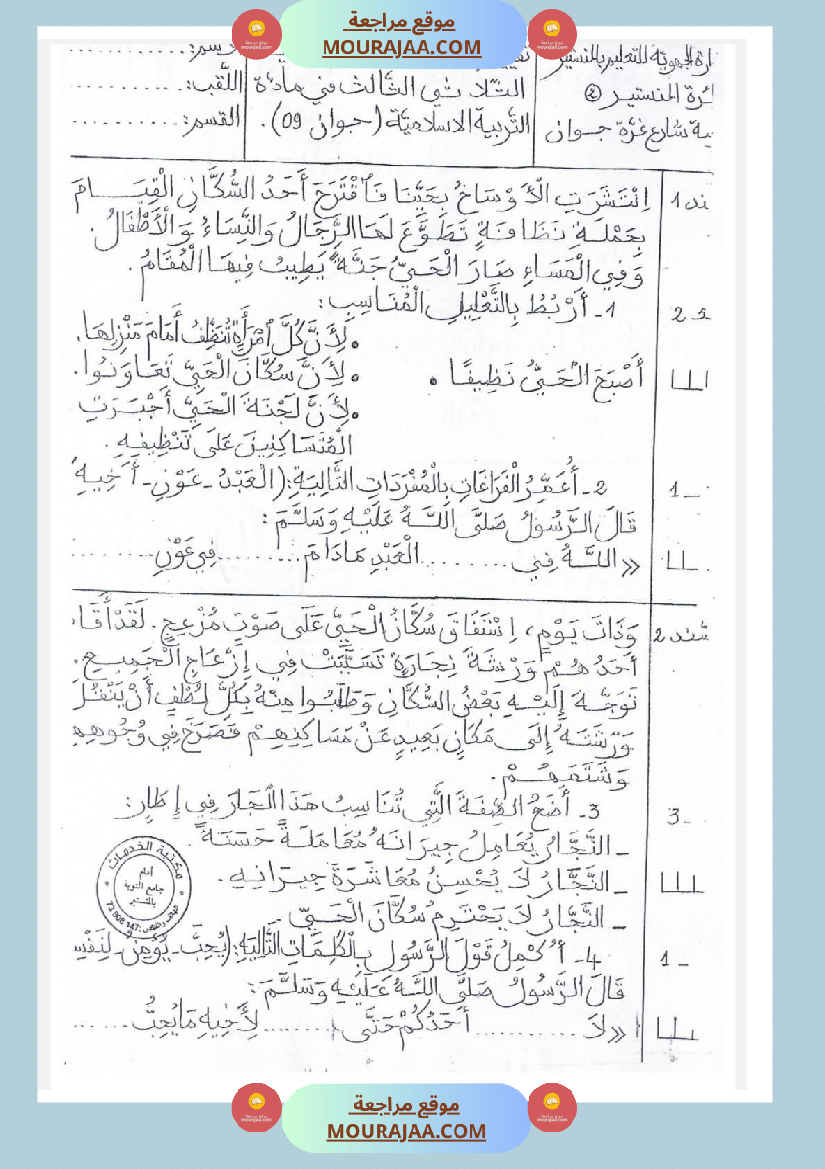 موقع مراجعة
MOURAJAA.COM
الجهوية للتعليم بالمنستير
المنستير
شارع غزة جوان
الثلاثي الثالث في مادة
التربية الاسلامية (جوان 09).
اللقب: ..........
القسم: ..........
اِنْتَشَرَتِ الْأَوْسَاخُ بِحَيِّنَا فَاقْتَرَحَ أَحَدُ السُّكَّانِ الْقِيَامَ
بِحَمْلَةِ نَظَافَةٍ تَطَوَّعَ لَهَا الرِّجَالُ وَالنِّسَاءُ وَالْأَطْفَالُ.
وَفِي الْمَسَاءِ صَارَ الْحَيُّ جَنَّةً يَطِيبُ فِيهَا الْمُقَامُ.
1- أَرْبُطُ بِالتَّعْلِيلِ الْمُنَاسِبِ:
• لِأَنَّ كُلَّ امْرَأَةٍ تُنَظِّفُ أَمَامَ مَنْزِلِهَا.
أَصْبَحَ الْحَيُّ نَظِيفًا • • لِأَنَّ سُكَّانَ الْحَيِّ تَعَاوَنُوا.
• لِأَنَّ لَجْنَةَ الْحَيِّ أَجْبَرَتِ
الْمُتَسَاكِنِينَ عَلَى تَنْظِيفِهِ.
2- أُعَمِّرُ الْفَرَاغَاتِ بِالْمُفْرَدَاتِ التَّالِيَةِ: (الْعَبْدُ - عَوْنِ - أَخِيهِ
قَالَ الرَّسُولُ صَلَّى اللَّهُ عَلَيْهِ وَسَلَّمَ:
«اللَّهُ فِي .......... الْعَبْدِ مَا دَامَ .......... فِي عَوْنِ ..........
سند 2
وَذَاتَ يَوْمٍ، اِسْتَفَاقَ سُكَّانُ الْحَيِّ عَلَى صَوْتٍ مُزْعِجٍ. لَقَدْ أَقَا
أَحَدُهُمْ وَرْشَةَ نِجَارَةٍ تَسَبَّبَتْ فِي إِزْعَاجِ الْجَمِيعِ.
تَوَجَّهَ إِلَيْهِ بَعْضُ السُّكَّانِ وَطَلَبُوا مِنْهُ بِكُلِّ لُطْفٍ أَنْ يَنْقُلَ
وَرْشَتَهُ إِلَى مَكَانٍ بَعِيدٍ عَنْ مَسَاكِنِهِمْ فَصَرَخَ فِي وُجُوهِهِمْ
وَشَتَمَهُمْ.
3- أَضَعُ الصِّفَةَ الَّتِي تُنَاسِبُ هَذَا الْجَارَ فِي إِطَارٍ:
- النَّجَّارُ يُعَامِلُ جِيرَانَهُ مُعَامَلَةً حَسَنَةً.
- النَّجَّارُ لَا يُحْسِنُ مُعَاشَرَةَ جِيرَانِهِ.
- النَّجَّارُ لَا يَحْتَرِمُ سُكَّانَ الْحَيِّ.
4- أُكْمِلُ قَوْلَ الرَّسُولِ بِالْكَلِمَاتِ التَّالِيَةِ: (يُحِبَّ - يُؤْمِنُ - لِنَفْسِ
قَالَ الرَّسُولُ صَلَّى اللَّهُ عَلَيْهِ وَسَلَّمَ:
«لَا .......... أَحَدُكُمْ حَتَّى .......... لِأَخِيهِ مَا يُحِبُّ ..........
مكتبة الخدمات
أمام
جامع التوبة
موقع مراجعة
MOURAJAA.COM